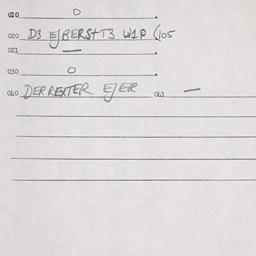 010 O
020 D3 EJBERST T3 W1P (105
021 —
030 O
040 DERREXTER EJER 041 —